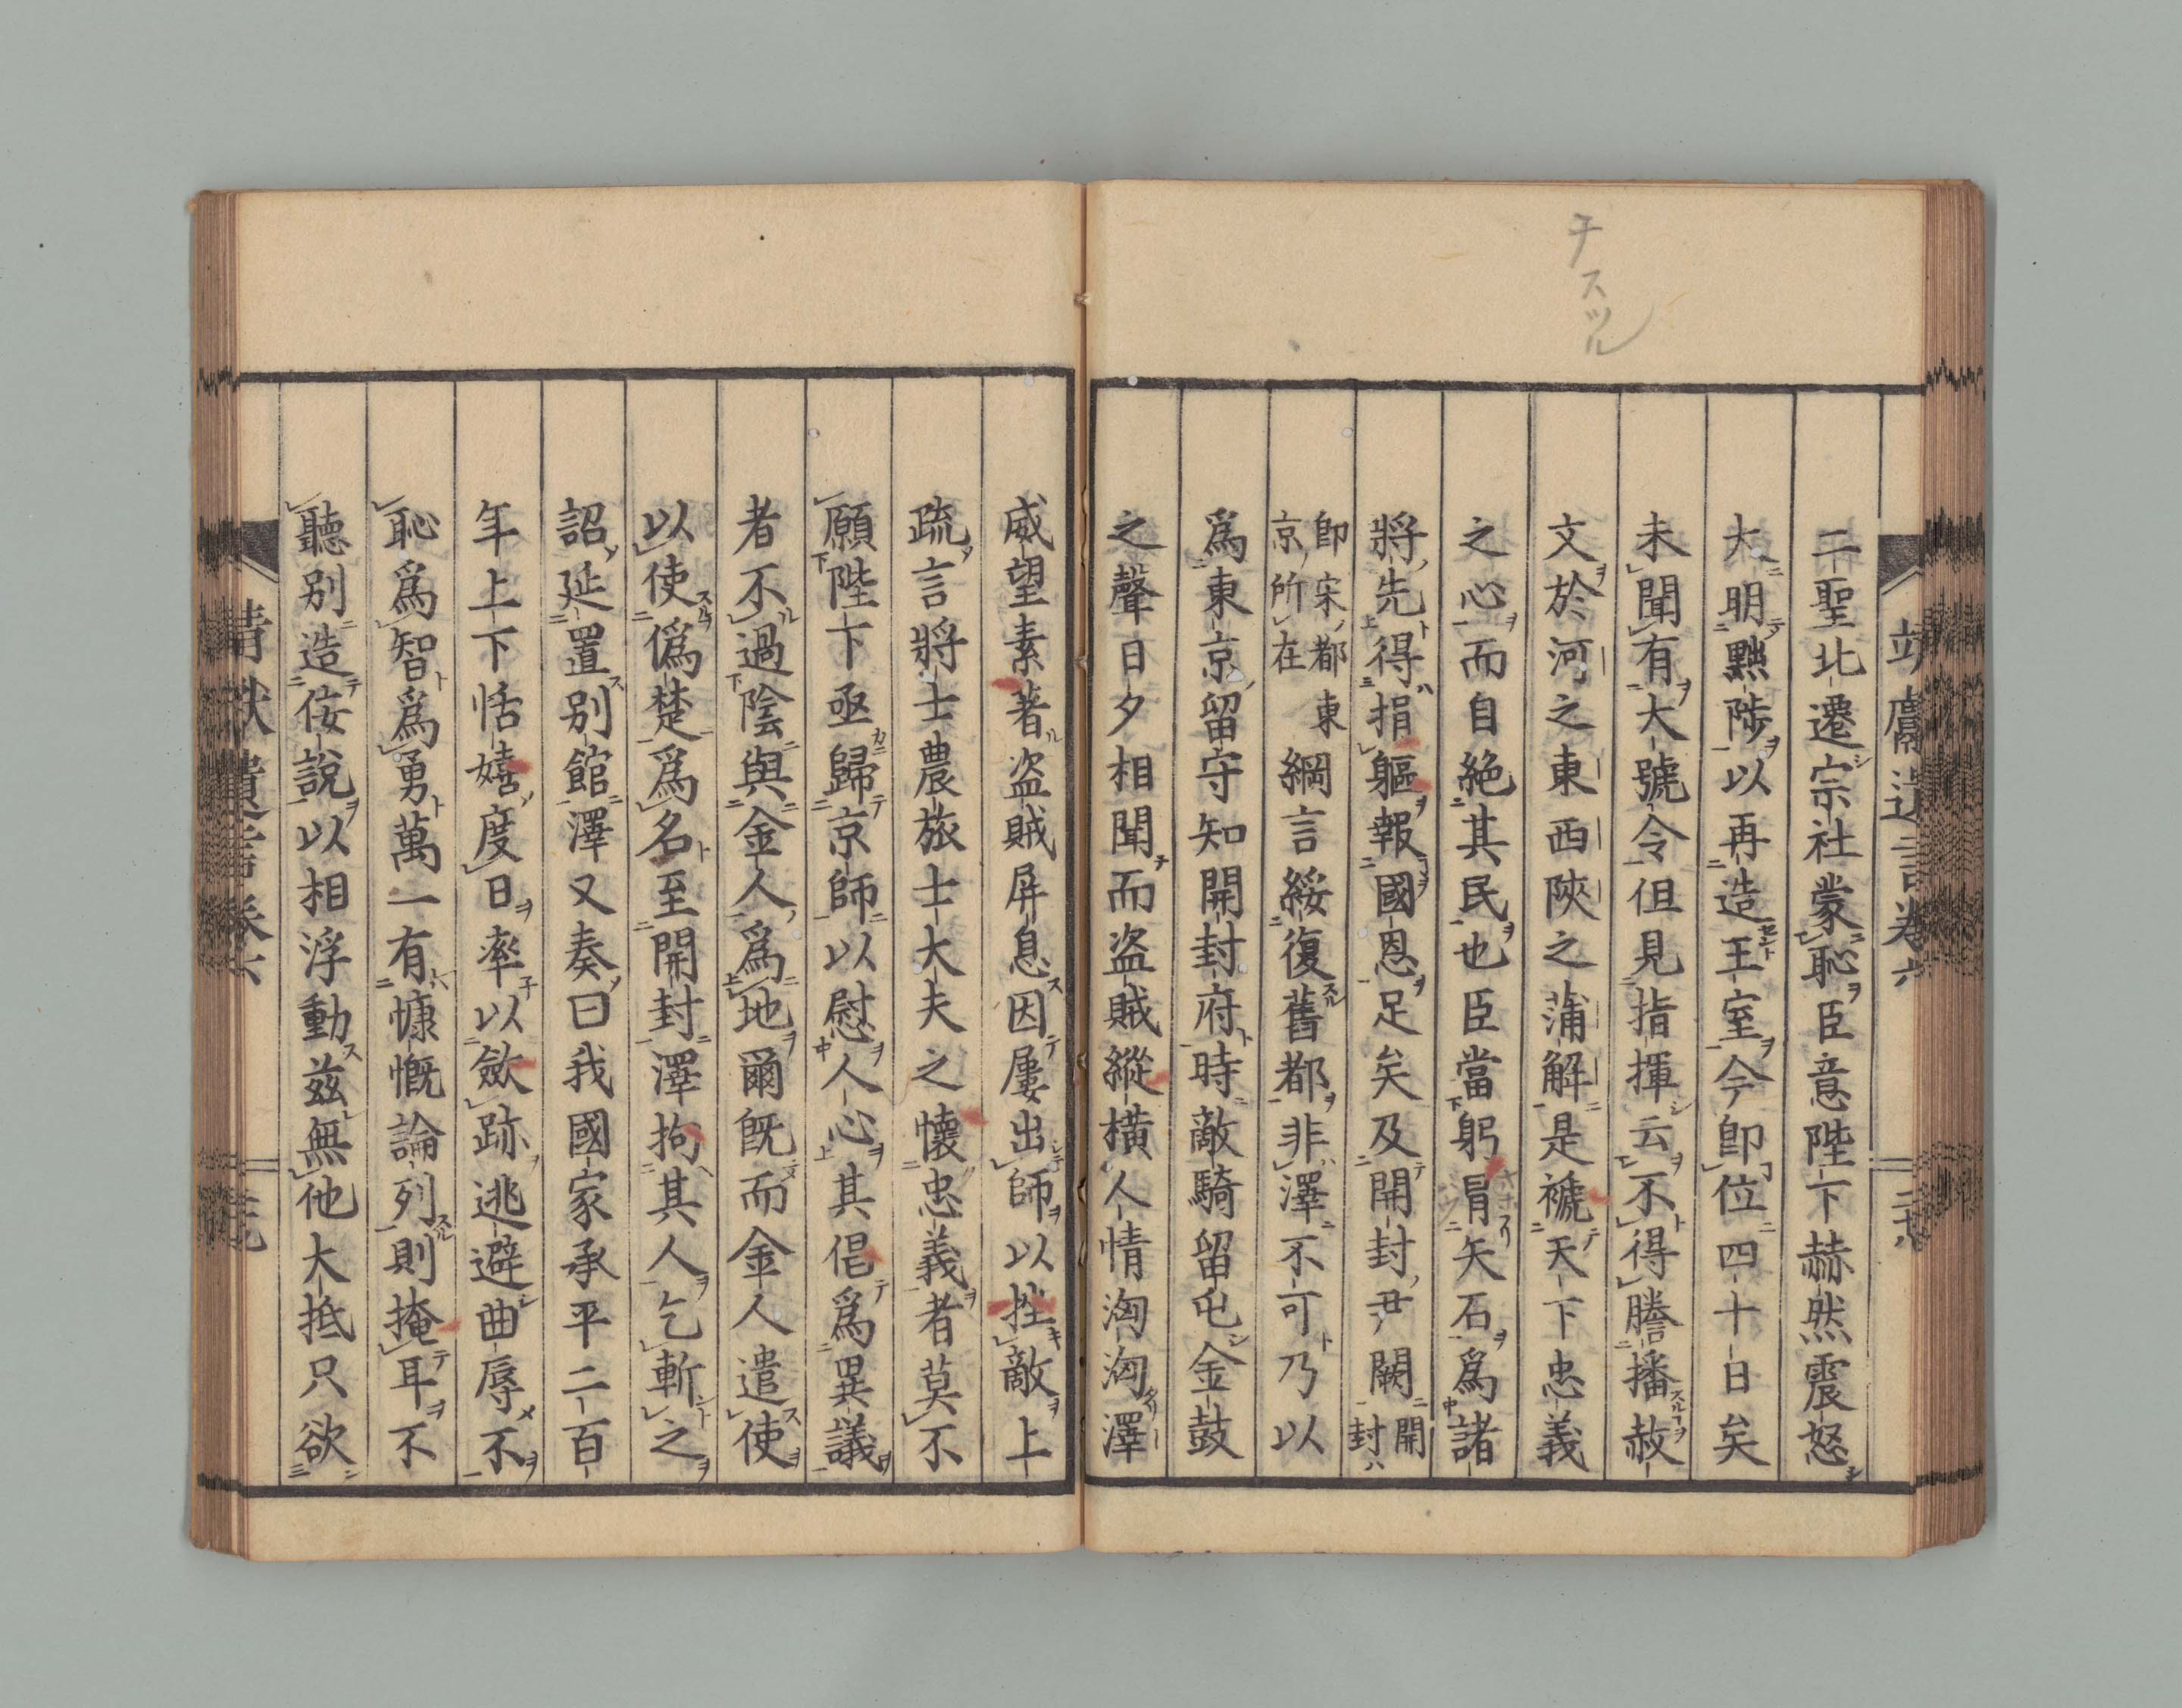 チスツル
靖獻遺言卷六
二聖北遷宗社蒙恥臣意陛下赫然震怒
大明黜陟以再造王室今卽位四十日矣
未聞有大號令但見指揮云不得謄播赦
文於河之東西陝之蒲解是褫天下忠義
之心而自絕其民也臣當躬冒矢石爲諸
將先得捐軀報國恩足矣及開封尹闕開
封ハ
卽宋ノ都東
京ノ所在
綱言綏復舊都非澤不可乃以
爲東京留守知開封府時敵騎留屯金鼓
之聲日夕相聞而盜賊縱橫人情洶洶澤
威望素著盜賊屏息因屢出師以挫敵上
疏言將士農旅士大夫之懷忠義者莫不
願陛下亟歸京師以慰人心其倡爲異議
者不過陰與金人爲地爾既而金人遣使
以使僞楚爲名至開封澤拘其人乞斬之
詔延置別館澤又奏曰我國家承平二百
年上下恬嬉度日率以斂跡逃避曲辱不
恥爲智爲勇萬一有慷慨論列則掩耳不
聽別造佞說以相浮動茲無他大抵只欲
靖獻遺言卷六